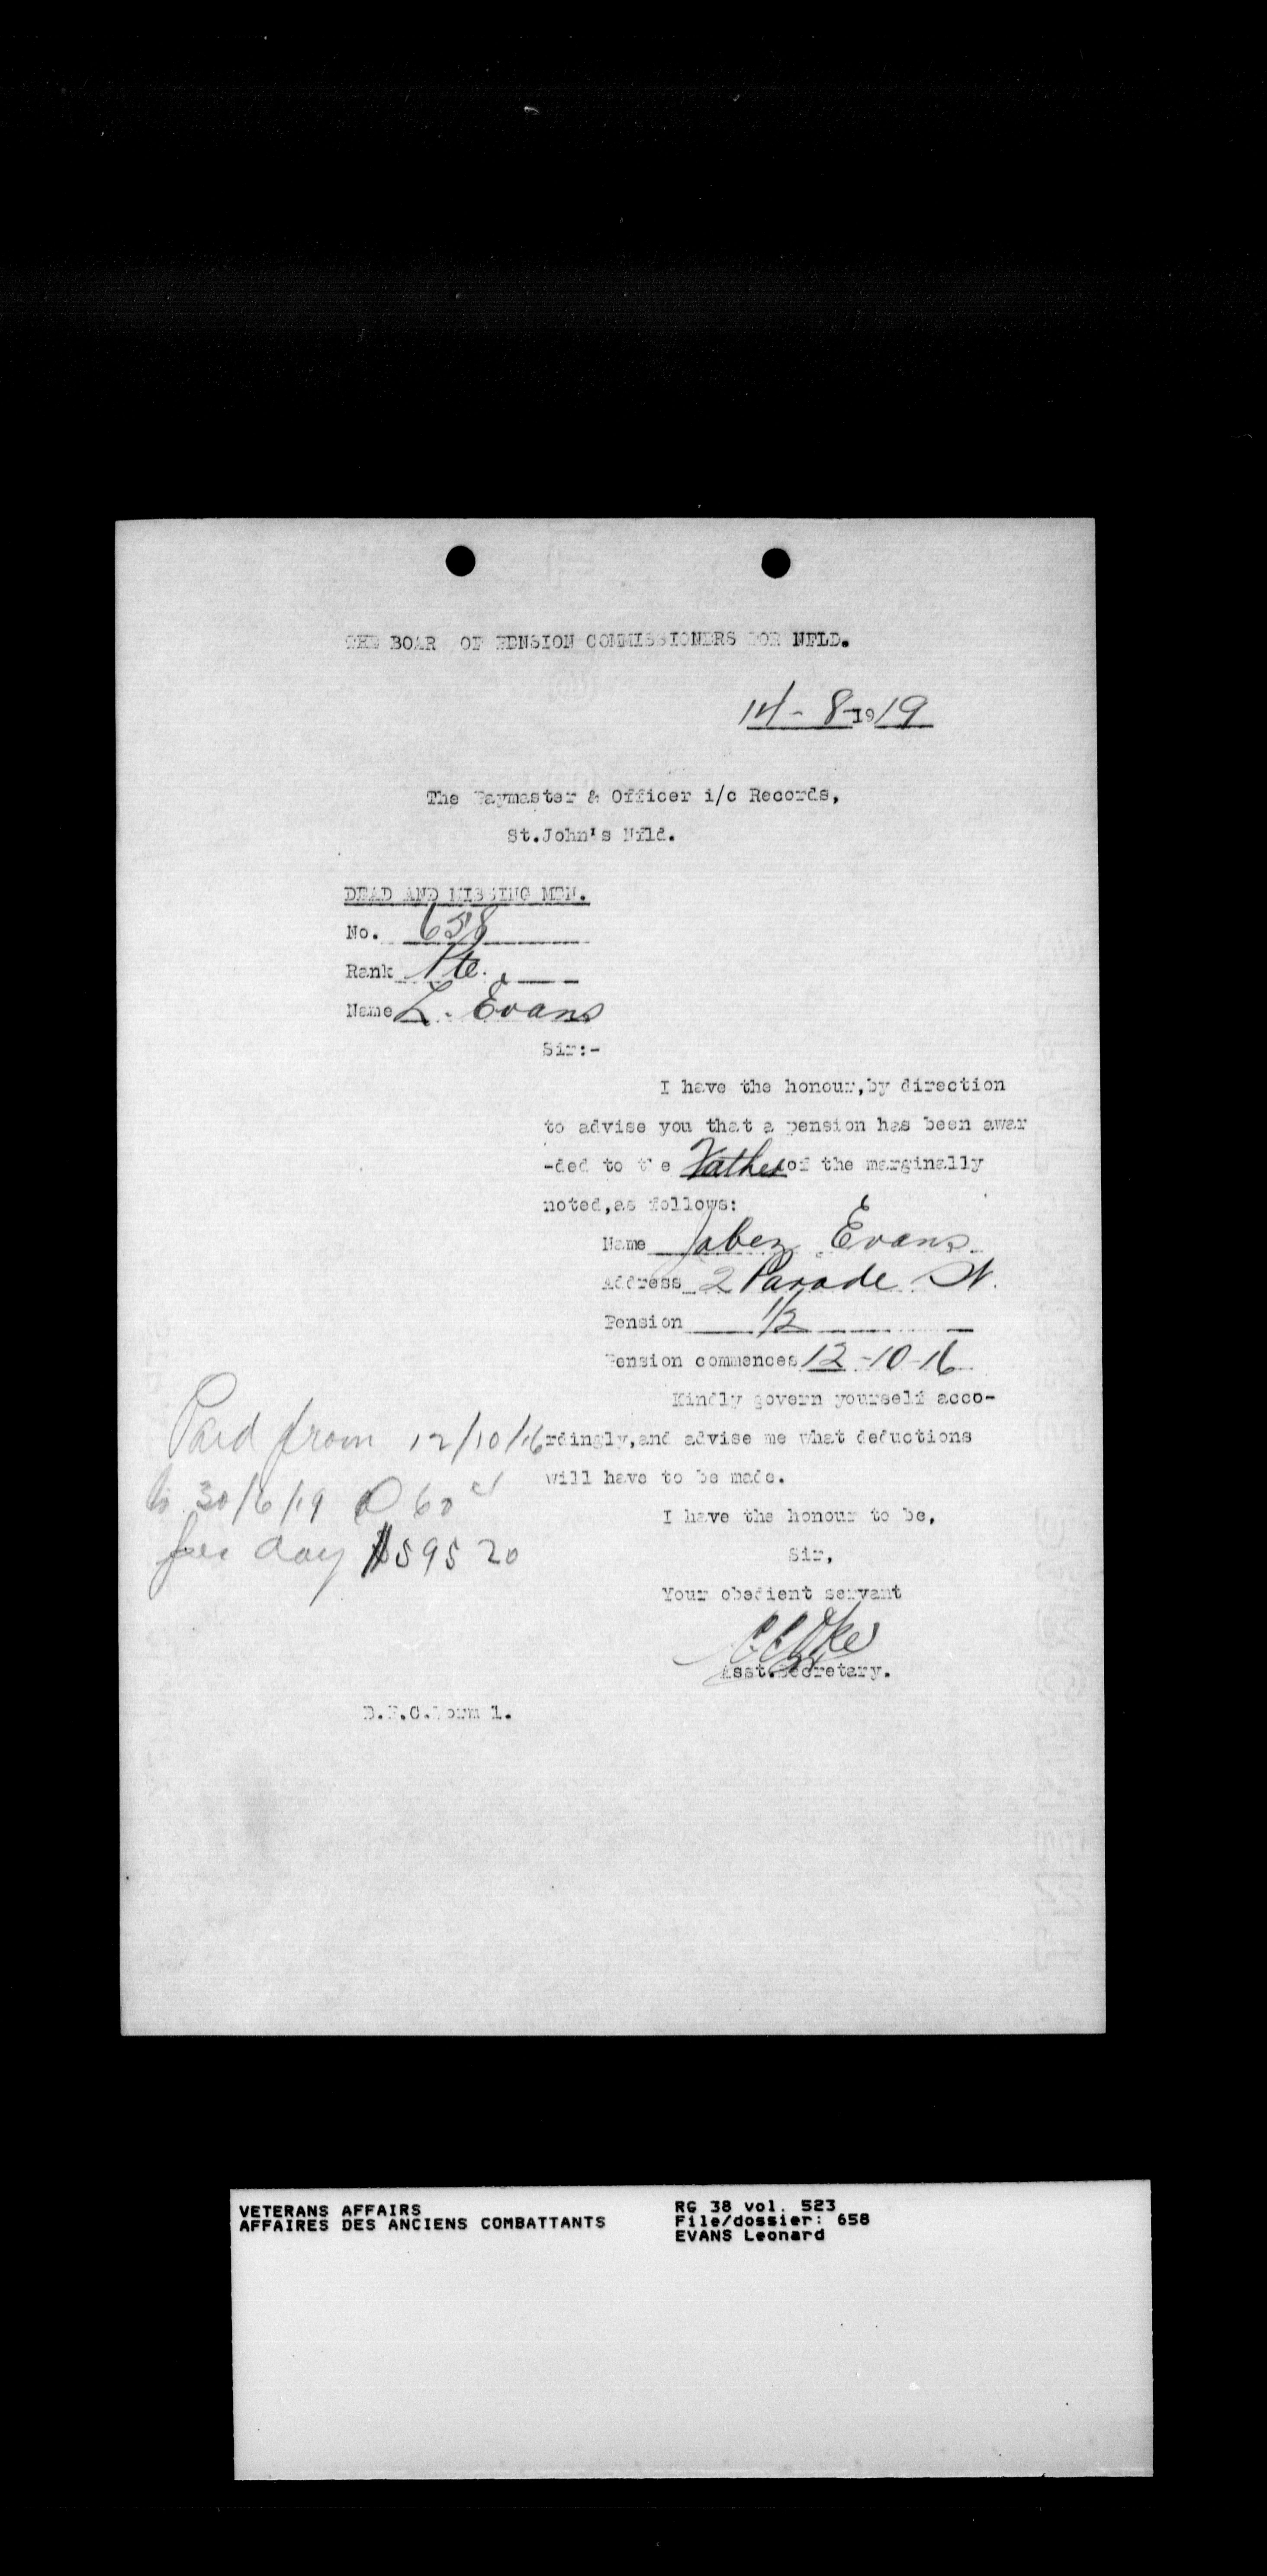 THE BOAR OF PENSION COMMISSIONERS FOR NFLD.
14-8-1919
The Paymaster & Officer i/c Records,
St.John's Nfld.
DEAD AND MISSING MEN.
No. 658
Rank Pte.
Name L. Evans
Sir:-
I have the honour,by direction
to advise you that a pension has been awar
-ded to the Father of the marginally
noted,as follows:
Name Jabez Evans
Address 2 Parade St.
Pension 1/2
Pension commences 12-10-16
Kindly govern yourself acco-
rdingly,and advise me what deductions
will have to be made.
Paid from 12/10/16
to 30/6/19 @ 60 cts
per day $595 20
I have the honour to be,
Sir,
Your obedient servant
Asst.Secretary.
B.P.C.Form 1.
VETERANS AFFAIRS
AFFAIRES DES ANCIENS COMBATTANTS
RG 38 vol. 523
File/dossier: 658
EVANS Leonard